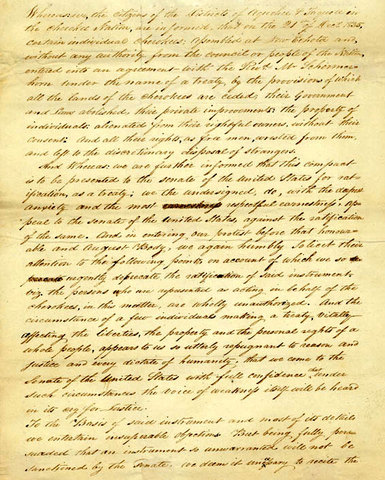 Whereas, the citizens of the Districts of Aquohee & Taquoee in
the Cherokee Nation, are informed, that on the 21st Decr. 1835,
certain individual Cherokees, assembled at New Echota and,
without any authority from the council or people of the Nation
entered into an agreement with the Revd. Mr. Schermer-
horn under the name of a treaty, by the provisions of which
all the lands of the cherokees are ceded, their Government
and law abolished, their private improvements, the property of
individuals, alienated from their rightful owners, without their
consent. And all these rights, as free men, wrested from them,
and left to the discretionary disposal of strangers.
And Whereas, we are further informed that this compact
is to be presented to the senate of the United States for rat-
ification, as a treaty; we the undersigned, do, with the deepest
anxiety and the most respectful earnestness, ap-
peal to the senate of the United states, against the ratification
of the same. And in entering our protest before that honour-
able and August Body, we again humbly solicit their
attention to the following points on account of which we so
urgently deprecate the ratification of said instrument.
viz, the persons who are represented as acting in behalf of the
cherokees, in this matter, are wholly unauthorized. And the
circumstance of a few individuals making a treaty, vitally
affecting the liberties, the property and the personal rights of a
whole people, appears to us so utterly repugnant to reason and
justice and every dictate of humanity, that we come to the
Senate of the United States with full confidence that under
such circumstances the voice of weakness itself will be heard
in its cry for Justice.
To the Basis of said instrument and most of its details
we entertain insuperable objections But being fully per-
suaded that an instrument so unwarranted will not be
sanctioned by the Senate, we deem it unnecessary to recite the